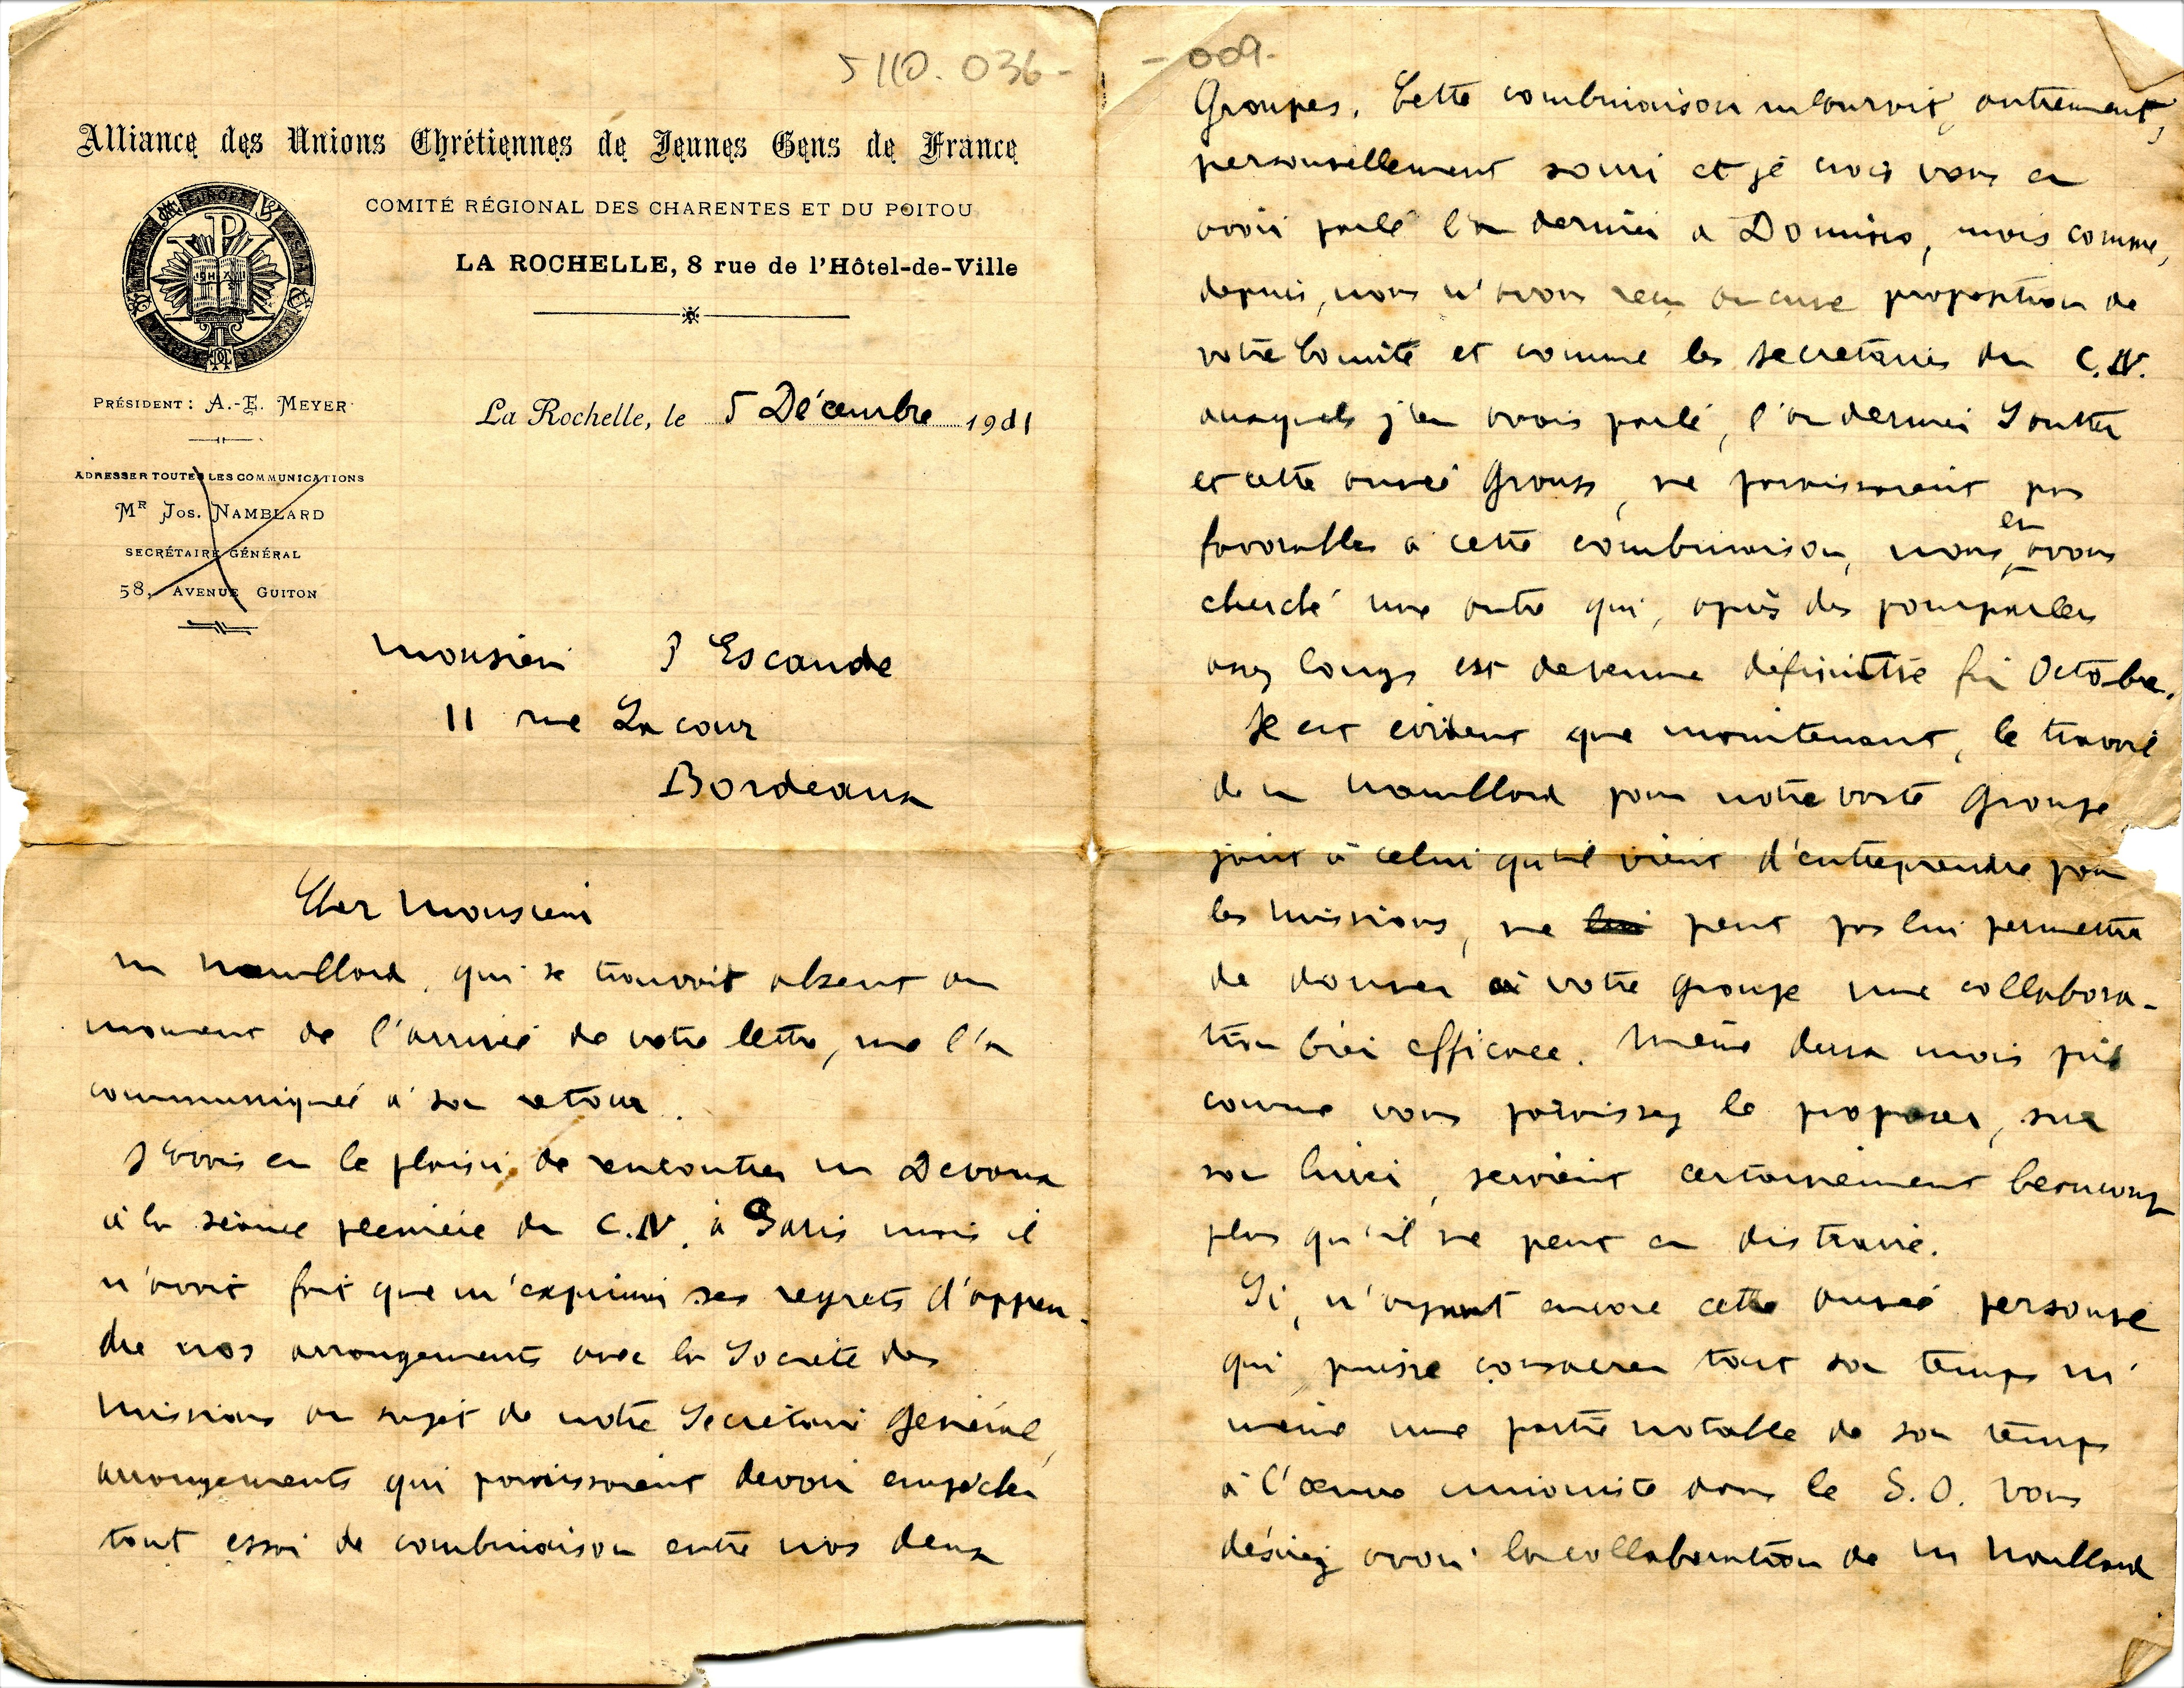 5110.036-
Alliance des Unions Chrétiennes de Jeunes Gens de France
COMITÉ RÉGIONAL DES CHARENTES ET DU POITOU
LA ROCHELLE, 8 rue de l'Hôtel-de-Ville
PRÉSIDENT: A.-E. MEYER
La Rochelle, le 5 Décembre 1911
ADRESSER TOUTES LES COMMUNICATIONS
MR JOS. NAMBLARD
SECRÉTAIRE GÉNÉRAL
58, AVENUE GUITON
Monsieur J Escande
11 rue Lacour
Bordeaux
Cher Monsieur
M Namblard, qui se trouvait absent au
moment de l'arrivée de votre lettre, me l'a
communiquée à son retour.
J'avais eu le plaisir de rencontrer M Devoux
à la séance plénière du C.N. à Paris mais il
n'avait fait que m'exprimer ses regrets d'appren-
dre nos arrangements avec la Société des
Missions au sujet de notre Secrétaire Général,
arrangements qui paraissaient devoir empêcher
tout essai de combinaison entre nos deux
- 009-
Groupes. Cette combinaison m'aurait, autrement,
personnellement souri et je crois vous en
avoir parlé l'an dernier à Domino, mais comme,
depuis, nous n'avons reçu aucune proposition de
votre Comité et comme les secrétaires du C.N.
auxquels j'en avais parlé, l'an dernier Soutter
et cette année Grouss, ne paraissaient pas
favorables à cette combinaison, nous en avons
cherché une autre qui, après des pourparlers
assez longs est devenue définitive fin Octobre.
Il est évident que maintenant, le travail
de M Namblard pour notre vaste Groupe
joint à celui qu'il vient d'entreprendre pour
les Missions, ne lui peut pas lui permettre
de donner à votre groupe une collabora-
tion bien efficace. Même deux mois pris
comme vous paraissez le proposer, sur
son hiver, seraient certainement beaucoup
plus qu'il ne peut en distraire.
Si, n'ayant encore cette année personne
qui puisse consacrer tout son temps ni
même une partie notable de son temps
à l'œuvre unioniste dans le S.O. vous
désirez avoir la collaboration de M Namblard